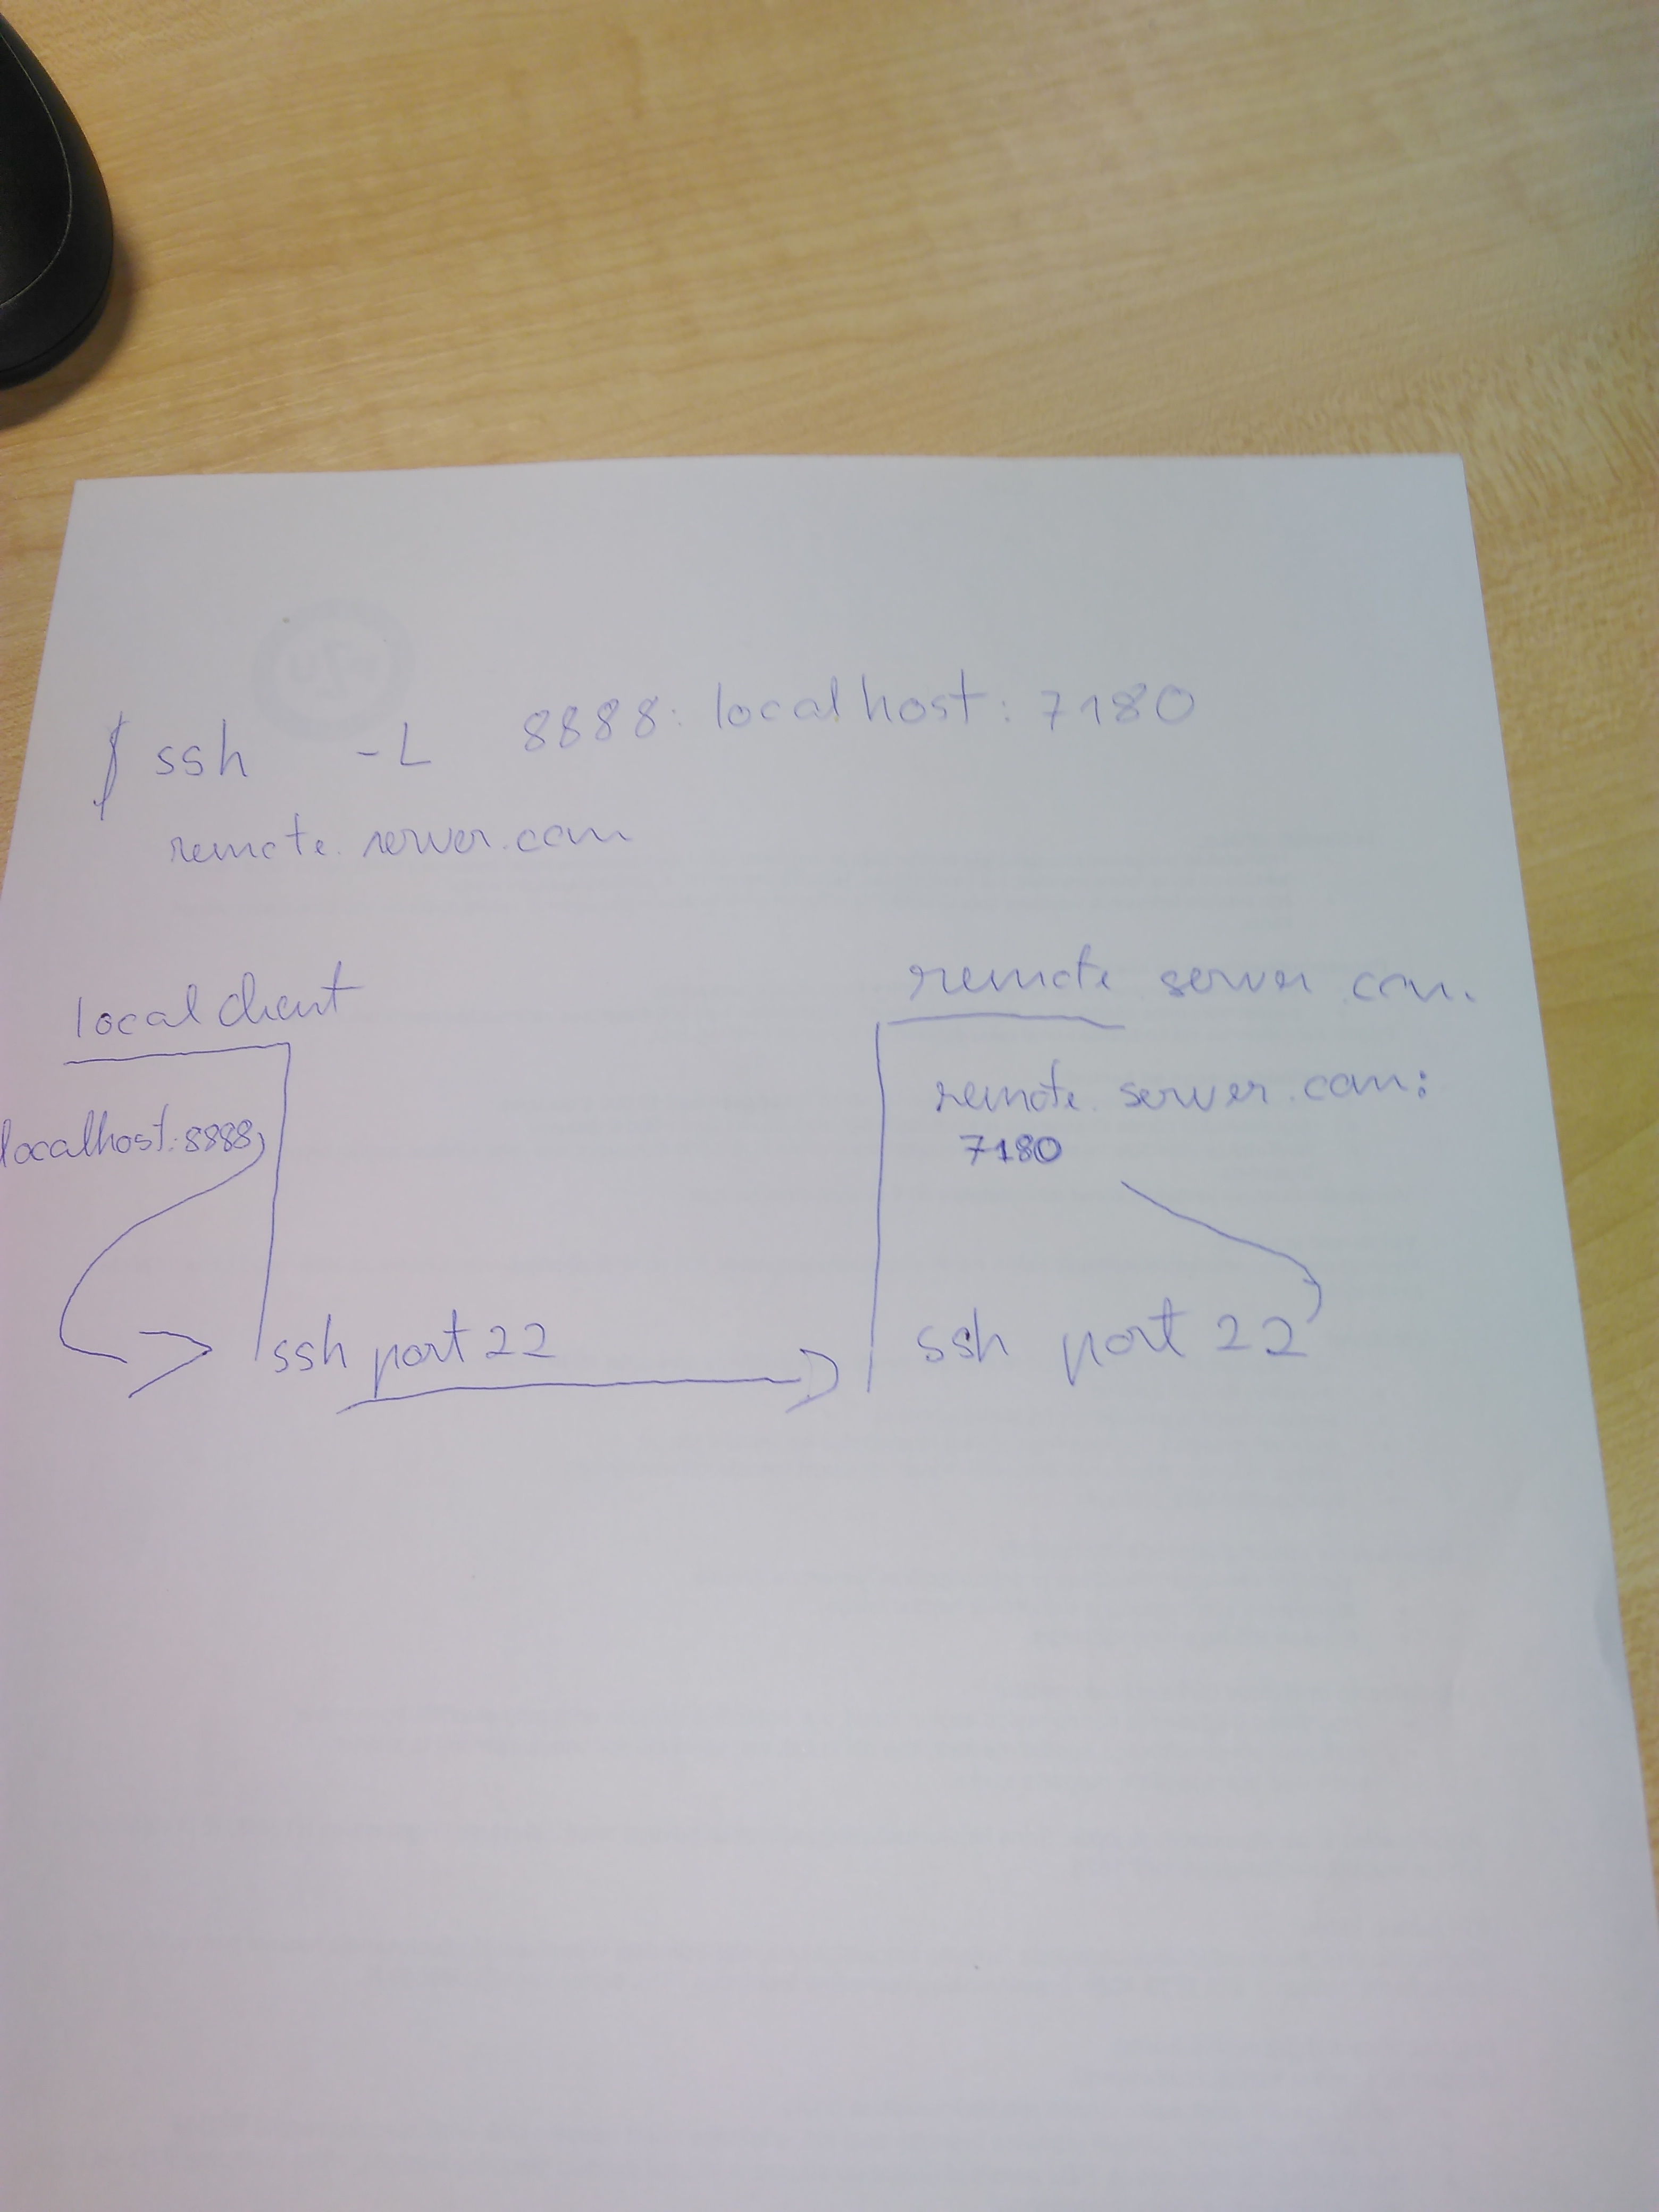 $ ssh -L 8888:localhost:7180
remote.server.com
local client
localhost:8888
ssh port 22
remote server.com.
remote.server.com:
7180
ssh port 22